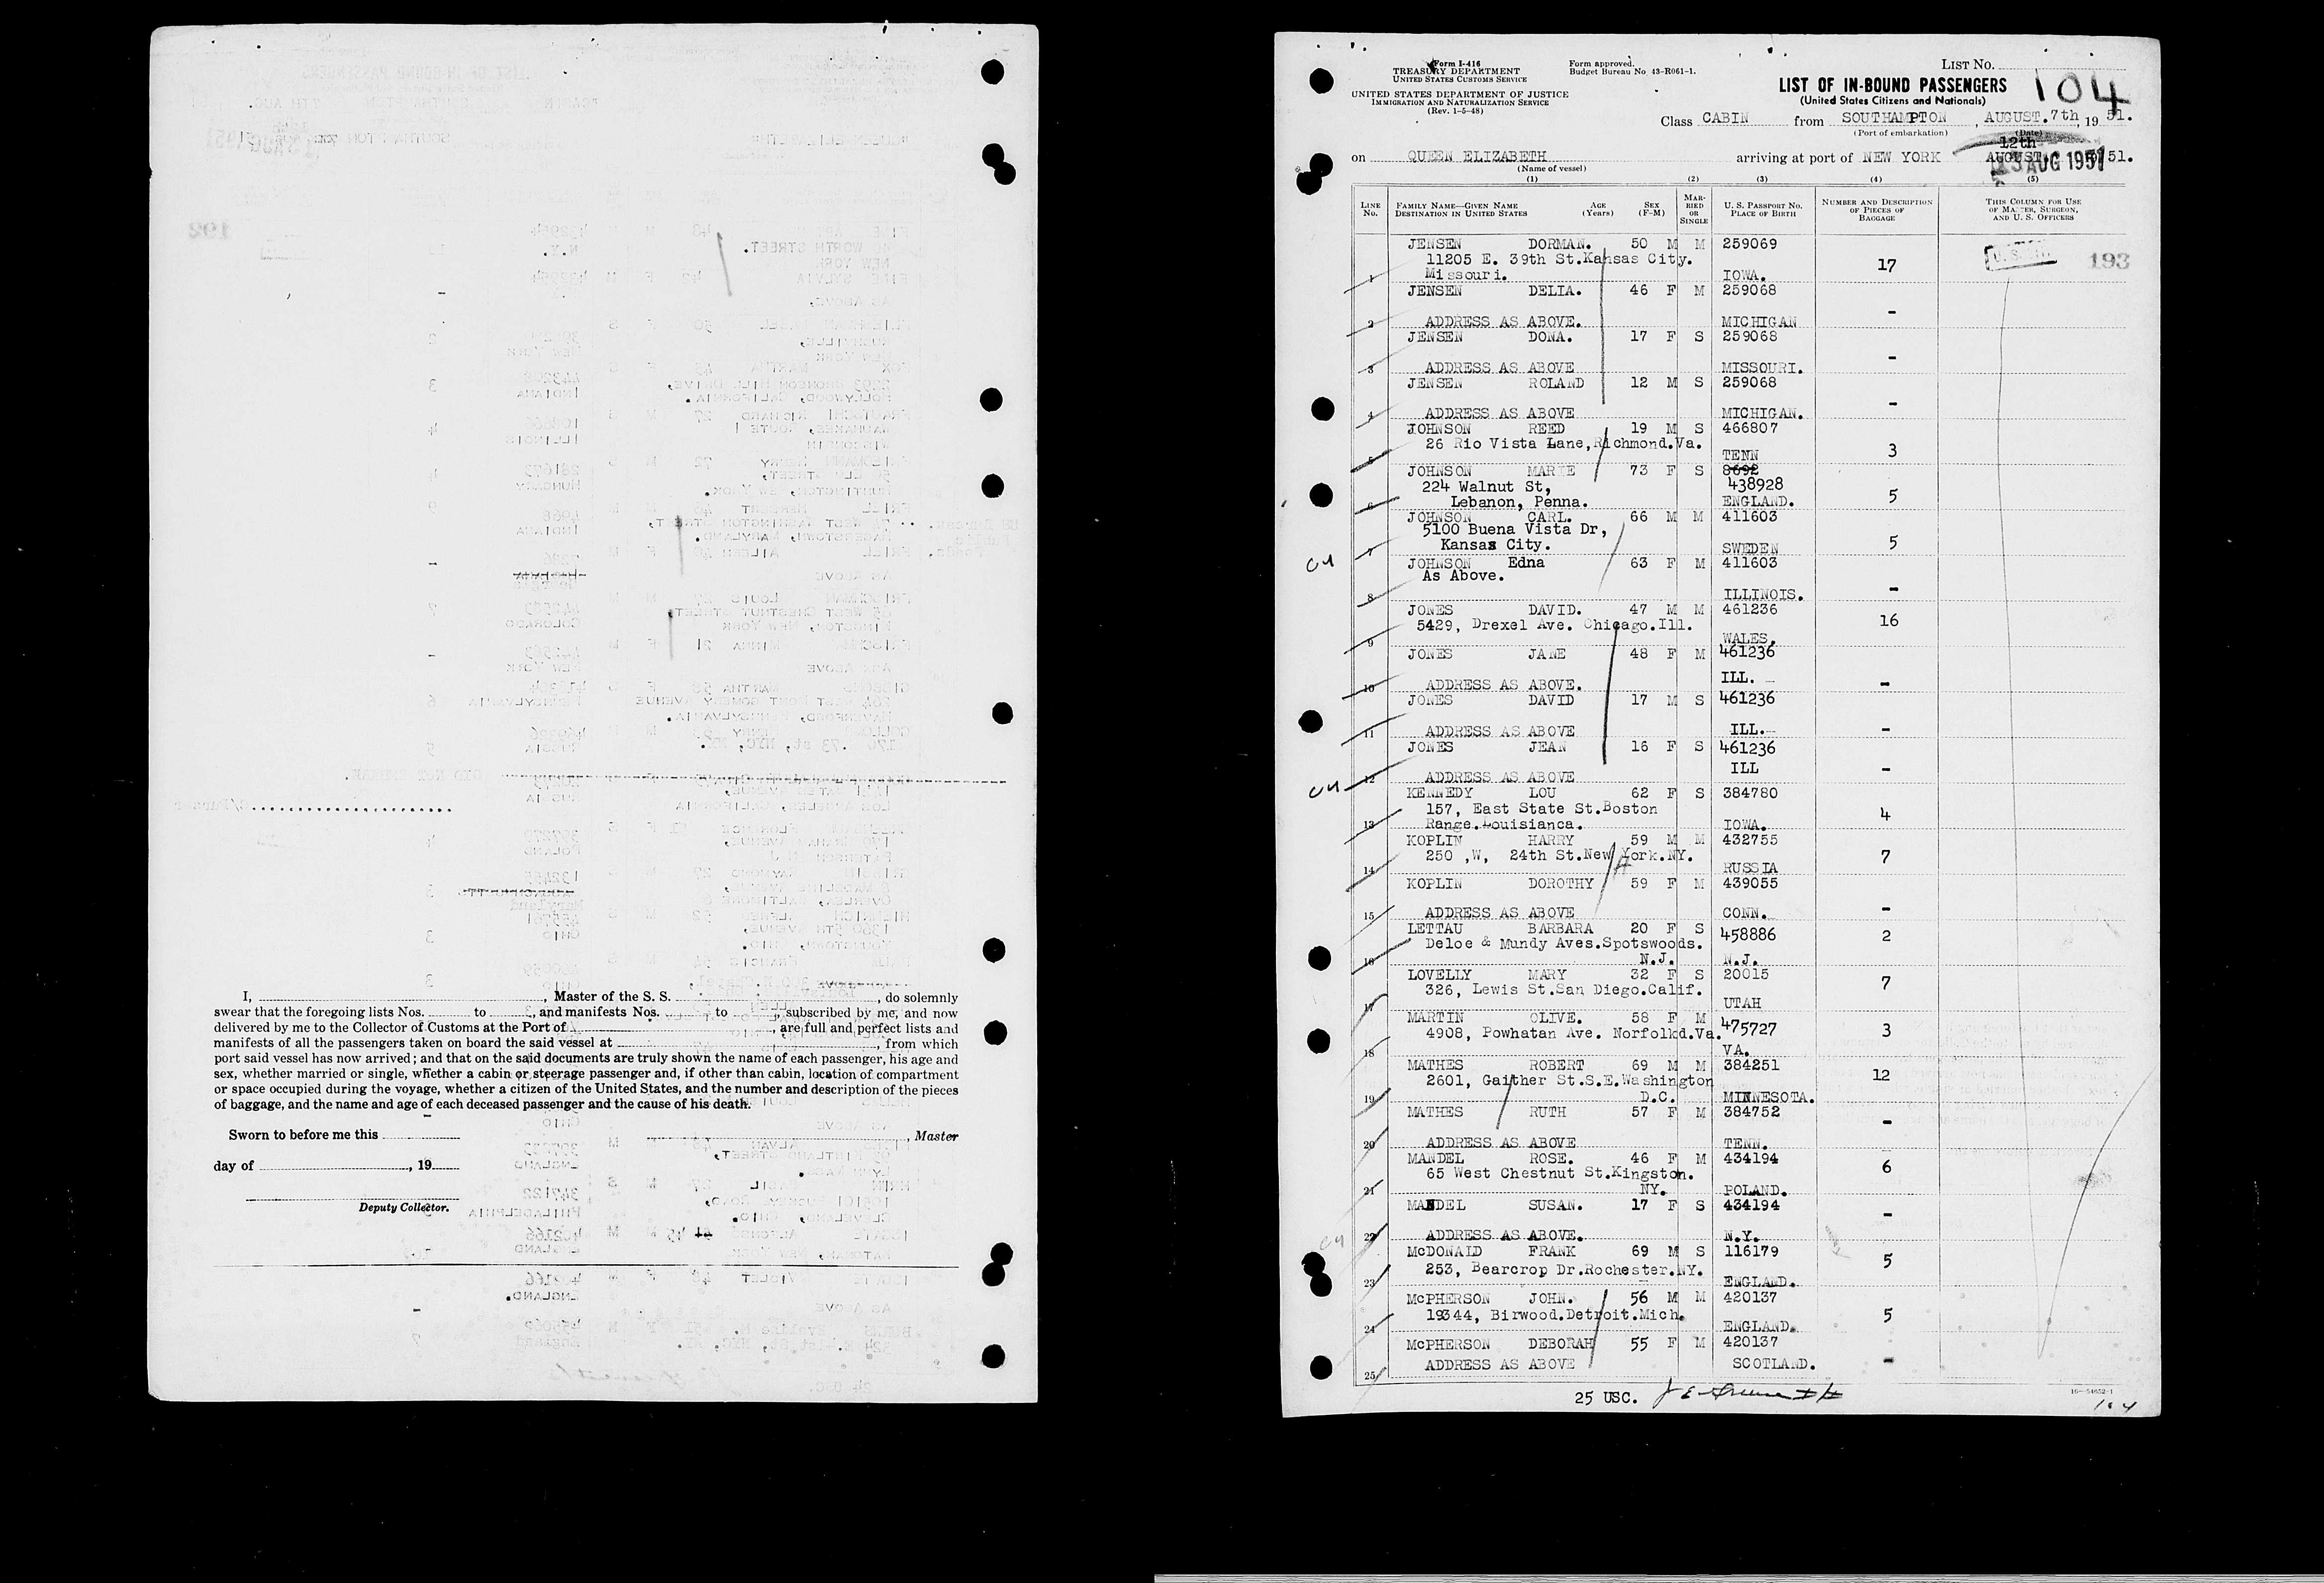 I, , Master of the S. S. , do solemnly
swear that the foregoing lists Nos. to , and manifests Nos. to , subscribed by me, and now
delivered by me to the Collector of Customs at the Port of , are full and perfect lists and
manifests of all the passengers taken on board the said vessel at , from which
port said vessel has now arrived; and that on the said documents are truly shown the name of each passenger, his age and
sex, whether married or single, whether a cabin or steerage passenger and, if other than cabin, location of compartment
or space occupied during the voyage, whether a citizen of the United States, and the number and description of the pieces
of baggage, and the name and age of each deceased passenger and the cause of his death.
Sworn to before me this , Master
day of , 19
Deputy Collector.
Form I-416
TREASURY DEPARTMENT
UNITED STATES CUSTOMS SERVICE
Form approved.
Budget Bureau No. 43-R061-1.
UNITED STATES DEPARTMENT OF JUSTICE
IMMIGRATION AND NATURALIZATION SERVICE
(Rev. 1-5-48)
LIST No. 104
LIST OF IN-BOUND PASSENGERS
(United States Citizens and Nationals)
Class CABIN from SOUTHAMPTON, AUGUST.7th, 19 51.
(Port of embarkation) (Date)
12th
on QUEEN ELIZABETH arriving at port of NEW YORK AUGUST 51.
13 AUG 1951
(Name of vessel)
(1) (2) (3) (4) (5)
LINE No. FAMILY NAME—GIVEN NAME DESTINATION IN UNITED STATES AGE (Years) SEX (F-M) MARRIED OR SINGLE U. S. PASSPORT NO. PLACE OF BIRTH NUMBER AND DESCRIPTION OF PIECES OF BAGGAGE THIS COLUMN FOR USE OF MASTER, SURGEON, AND U. S. OFFICERS
JENSEN DORMAN. 50 M M 259069
11205 E. 39th St.Kansas City. 17 193
1 Missouri. IOWA.
JENSEN DELIA. 46 F M 259068
-
2 ADDRESS AS ABOVE. MICHIGAN
JENSEN DONA. 17 F S 259068
-
3 ADDRESS AS ABOVE MISSOURI.
JENSEN ROLAND 12 M S 259068
-
4 ADDRESS AS ABOVE MICHIGAN.
JOHNSON REED 19 M S 466807
26 Rio Vista Lane,Richmond.Va. 3
5 TENN
JOHNSON MARIE 73 F S 8692
224 Walnut St, 438928
6 Lebanon, Penna. ENGLAND. 5
JOHNSON CARL. 66 M M 411603
5100 Buena Vista Dr,
7 Kansas City. SWEDEN 5
JOHNSON Edna 63 F M 411603
As Above.
8 ILLINOIS. -
JONES DAVID. 47 M M 461236
5429, Drexel Ave. Chicago.Ill. 16
9 WALES.
JONES JANE 48 F M 461236
ILL.
10 ADDRESS AS ABOVE. -
JONES DAVID 17 M S 461236
11 ADDRESS AS ABOVE ILL. -
JONES JEAN 16 F S 461236
ILL -
12 ADDRESS AS ABOVE
KENNEDY LOU 62 F S 384780
157, East State St.Boston 4
13 Range.Louisianca. IOWA.
KOPLIN HARRY 59 M M 432755
250 ,W, 24th St.New York.NY. 7
14 RUSSIA
KOPLIN DOROTHY 59 F M 439055
15 ADDRESS AS ABOVE CONN. -
LETTAU BARBARA 20 F S 458886
Deloe & Mundy Aves.Spotswoods. 2
16 N.J. N.J.
LOVELLY MARY 32 F S 20015
326, Lewis St.San Diego.Calif. 7
17 UTAH
MARTIN OLIVE. 58 F M 475727
4908, Powhatan Ave. Norfolkd.Va. 3
18 VA.
MATHES ROBERT 69 M M 384251
2601, Gaither St.S.E.Washington 12
19 D.C. MINNESOTA.
MATHES RUTH 57 F M 384752
-
20 ADDRESS AS ABOVE TENN.
MANDEL ROSE. 46 F M 434194
65 West Chestnut St.Kingston. 6
21 NY. POLAND.
MANDEL SUSAN. 17 F S 434194
-
22 ADDRESS AS ABOVE. N.Y.
McDONALD FRANK 69 M S 116179
253, Bearcrop Dr.Rochester.NY. 5
23 ENGLAND.
McPHERSON JOHN. 56 M M 420137
19344, Birwood.Detroit.Mich. 5
24 ENGLAND.
McPHERSON DEBORAH 55 F M 420137
25 ADDRESS AS ABOVE SCOTLAND. -
25 USC.
16—54652-1
104